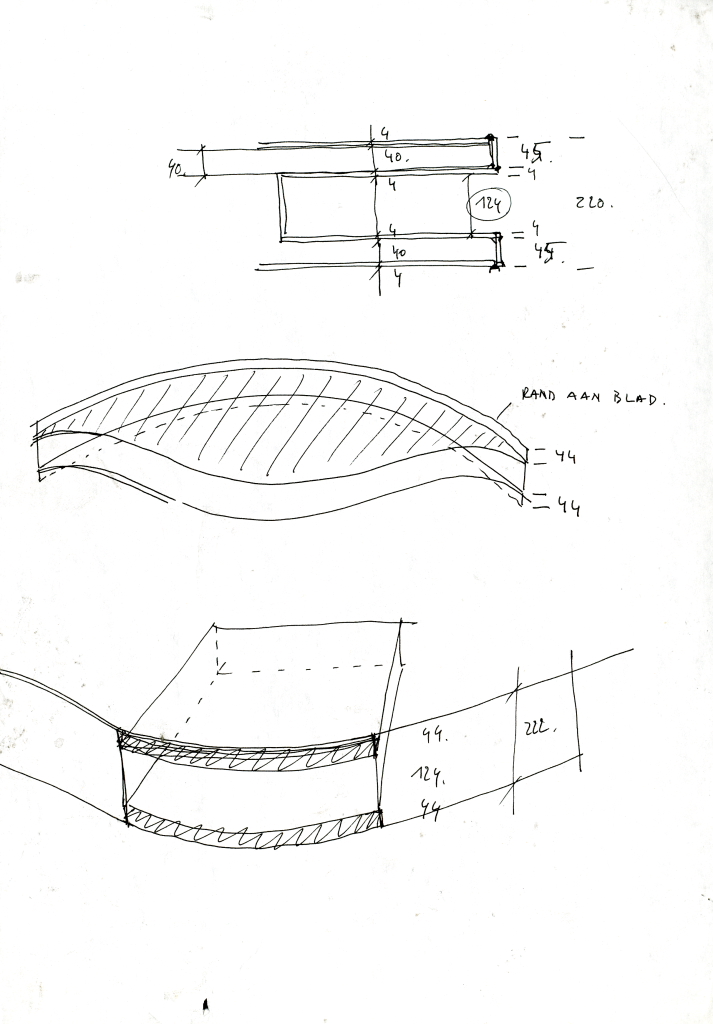 4
40.
40.
4
4
124
220.
4
4
40
4
RAND AAN BLAD.
44
44
44.
222.
124.
44